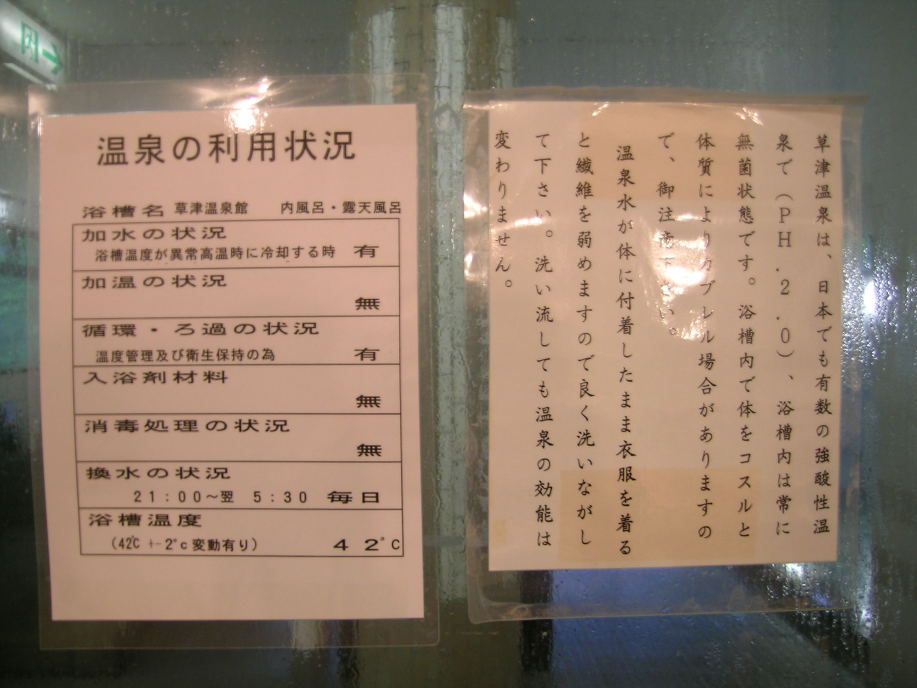 温泉の利用状況
浴槽名 草津温泉館 内風呂・露天風呂
加水の状況
浴槽温度が異常高温時に冷却する時 有
加温の状況
無
循環・ろ過の状況
温度管理及び衛生保持の為 有
入浴剤材料
無
消毒処理の状況
無
換水の状況
21:00～翌 5:30 毎日
浴槽温度
(42℃ +-2°c変動有り) 42°C
草津温泉は、日本でも有数の強酸性温
泉で(PH.2.0)、浴槽内は常に
無菌状態です。浴槽内で体をコスルと
体質によりカブレル場合がありますの
で、御注意下さい。
温泉水が体に付着したまま衣服を着る
と繊維を弱めますので良く洗いながし
て下さい。洗い流しても温泉の効能は
変わりません。